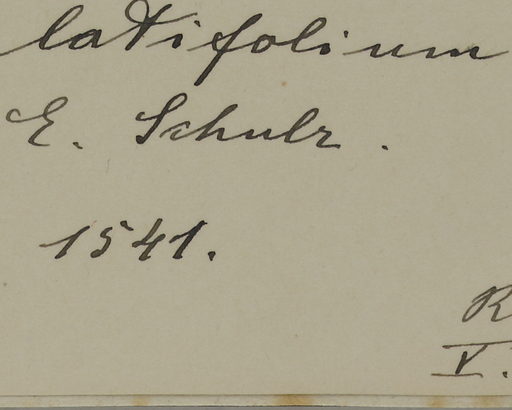 latifolium
E. Schulz.
1541.
R
V.